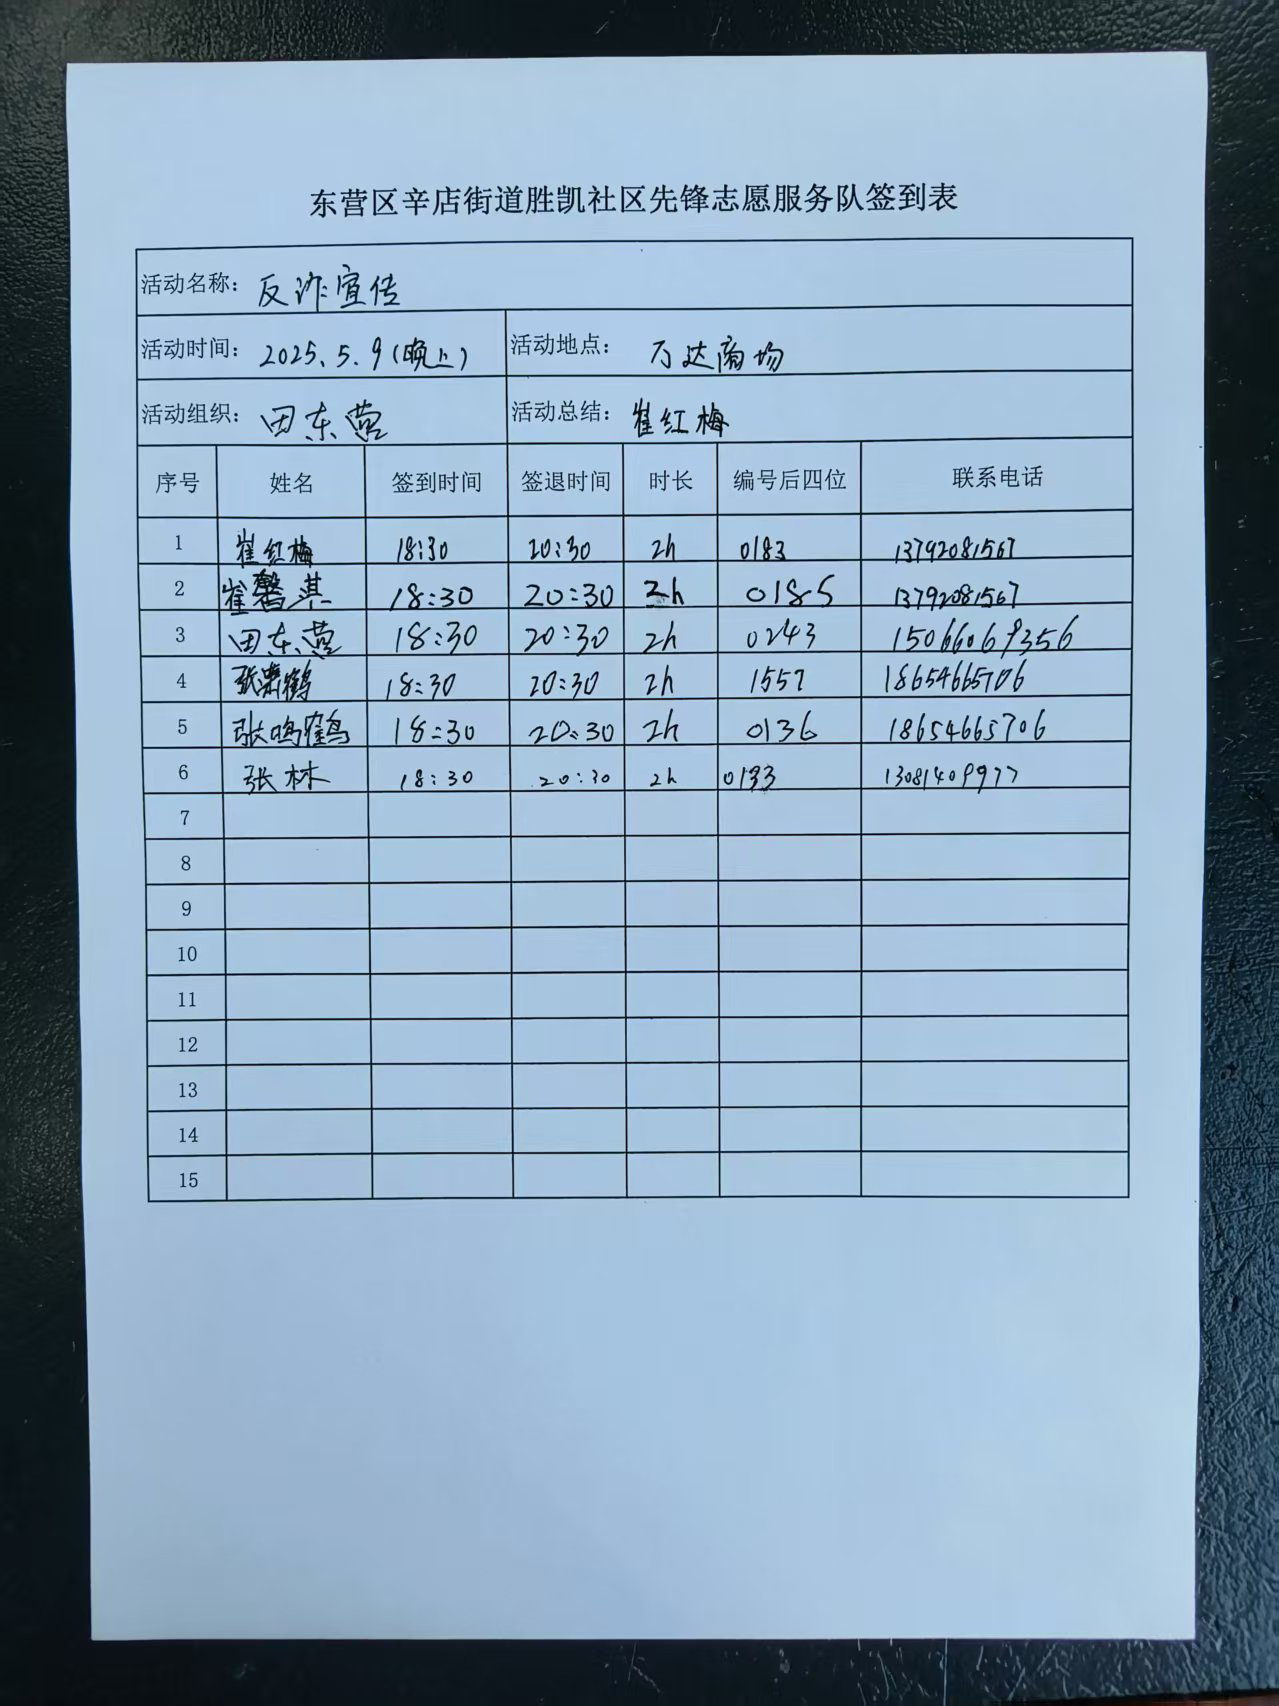 东营区辛店街道胜凯社区先锋志愿服务队签到表
活动名称：反诈宣传
活动时间：2025.5.9（晚上） 活动地点：万达商场
活动组织：田东营 活动总结：崔红梅
序号 姓名 签到时间 签退时间 时长 编号后四位 联系电话
1 崔红梅 18:30 20:30 2h 0183 13792081567
2 崔馨淇 18:30 20:30 2h 0185 13792081567
3 田东营 18:30 20:30 2h 0243 15066069356
4 张 鹤 18:30 20:30 2h 1557 18654665706
5 张鸣鹤 18:30 20:30 2h 0136 18654665706
6 张林 18:30 20:30 2h 13081409977
7
8
9
10
11
12
13
14
15